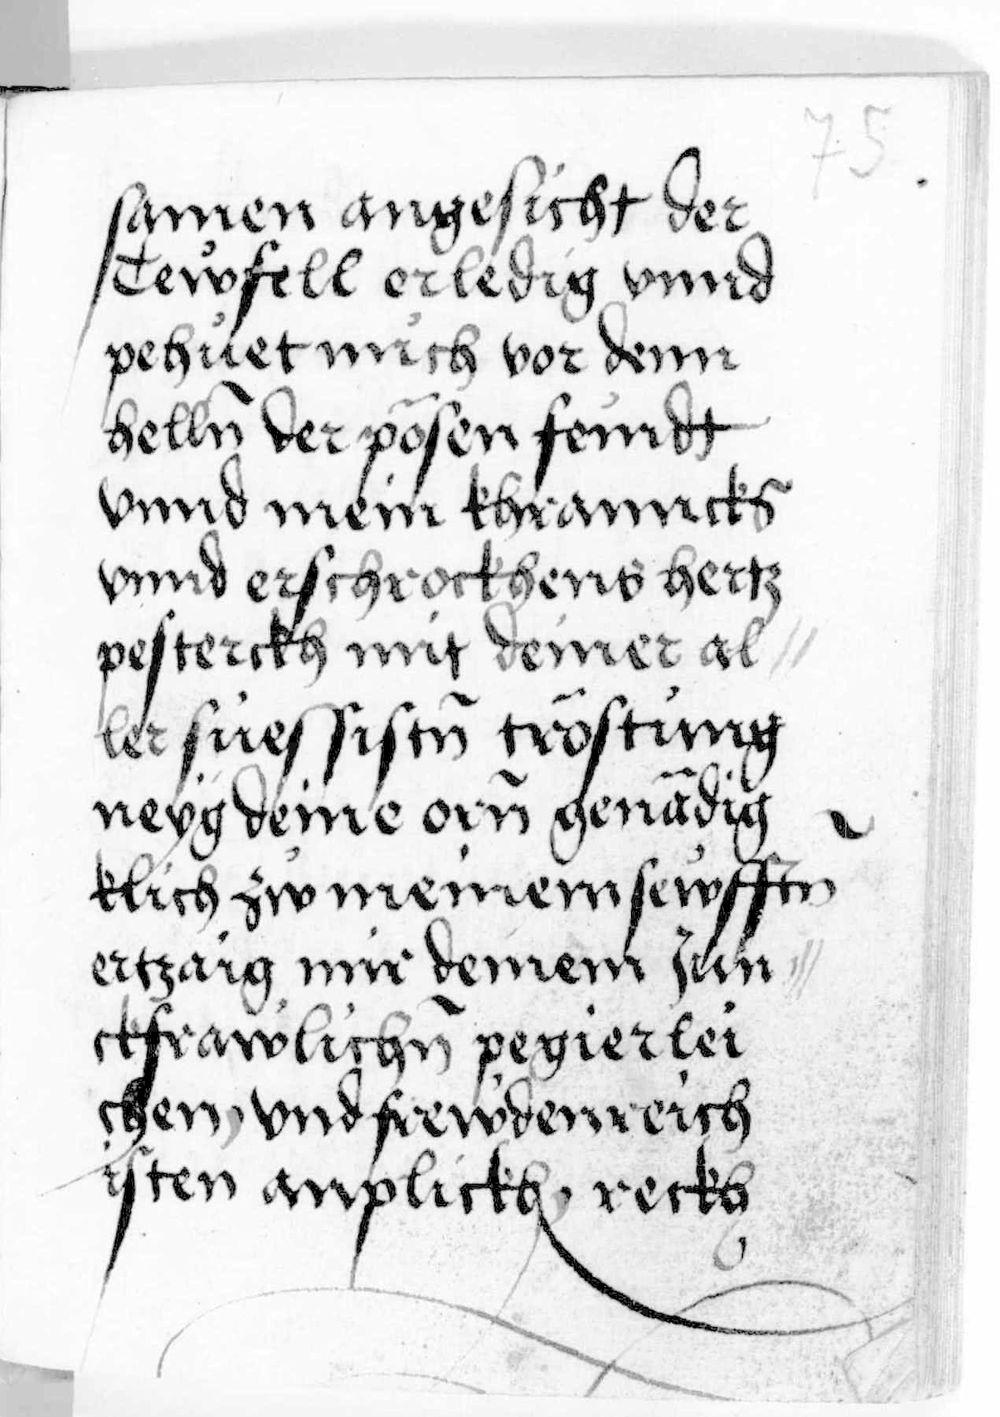 75
samen angesicht der
Tewfell erledig vnnd
pehüet mich vor denn
helln̄ der pösen feindt
vnnd mein khranncks̄
vnnd erschrockhens hertz
pesterckh mit deiner al//
ler süessistn̄ tröstung
neÿg deine orn̄ genädig
klich zw meinem sewfftn̄
ertzaig mir deinem Jun//
ckfrawlichn̄ pegierlei
chen, vnd frewdenreich
isten anplickh, reckh